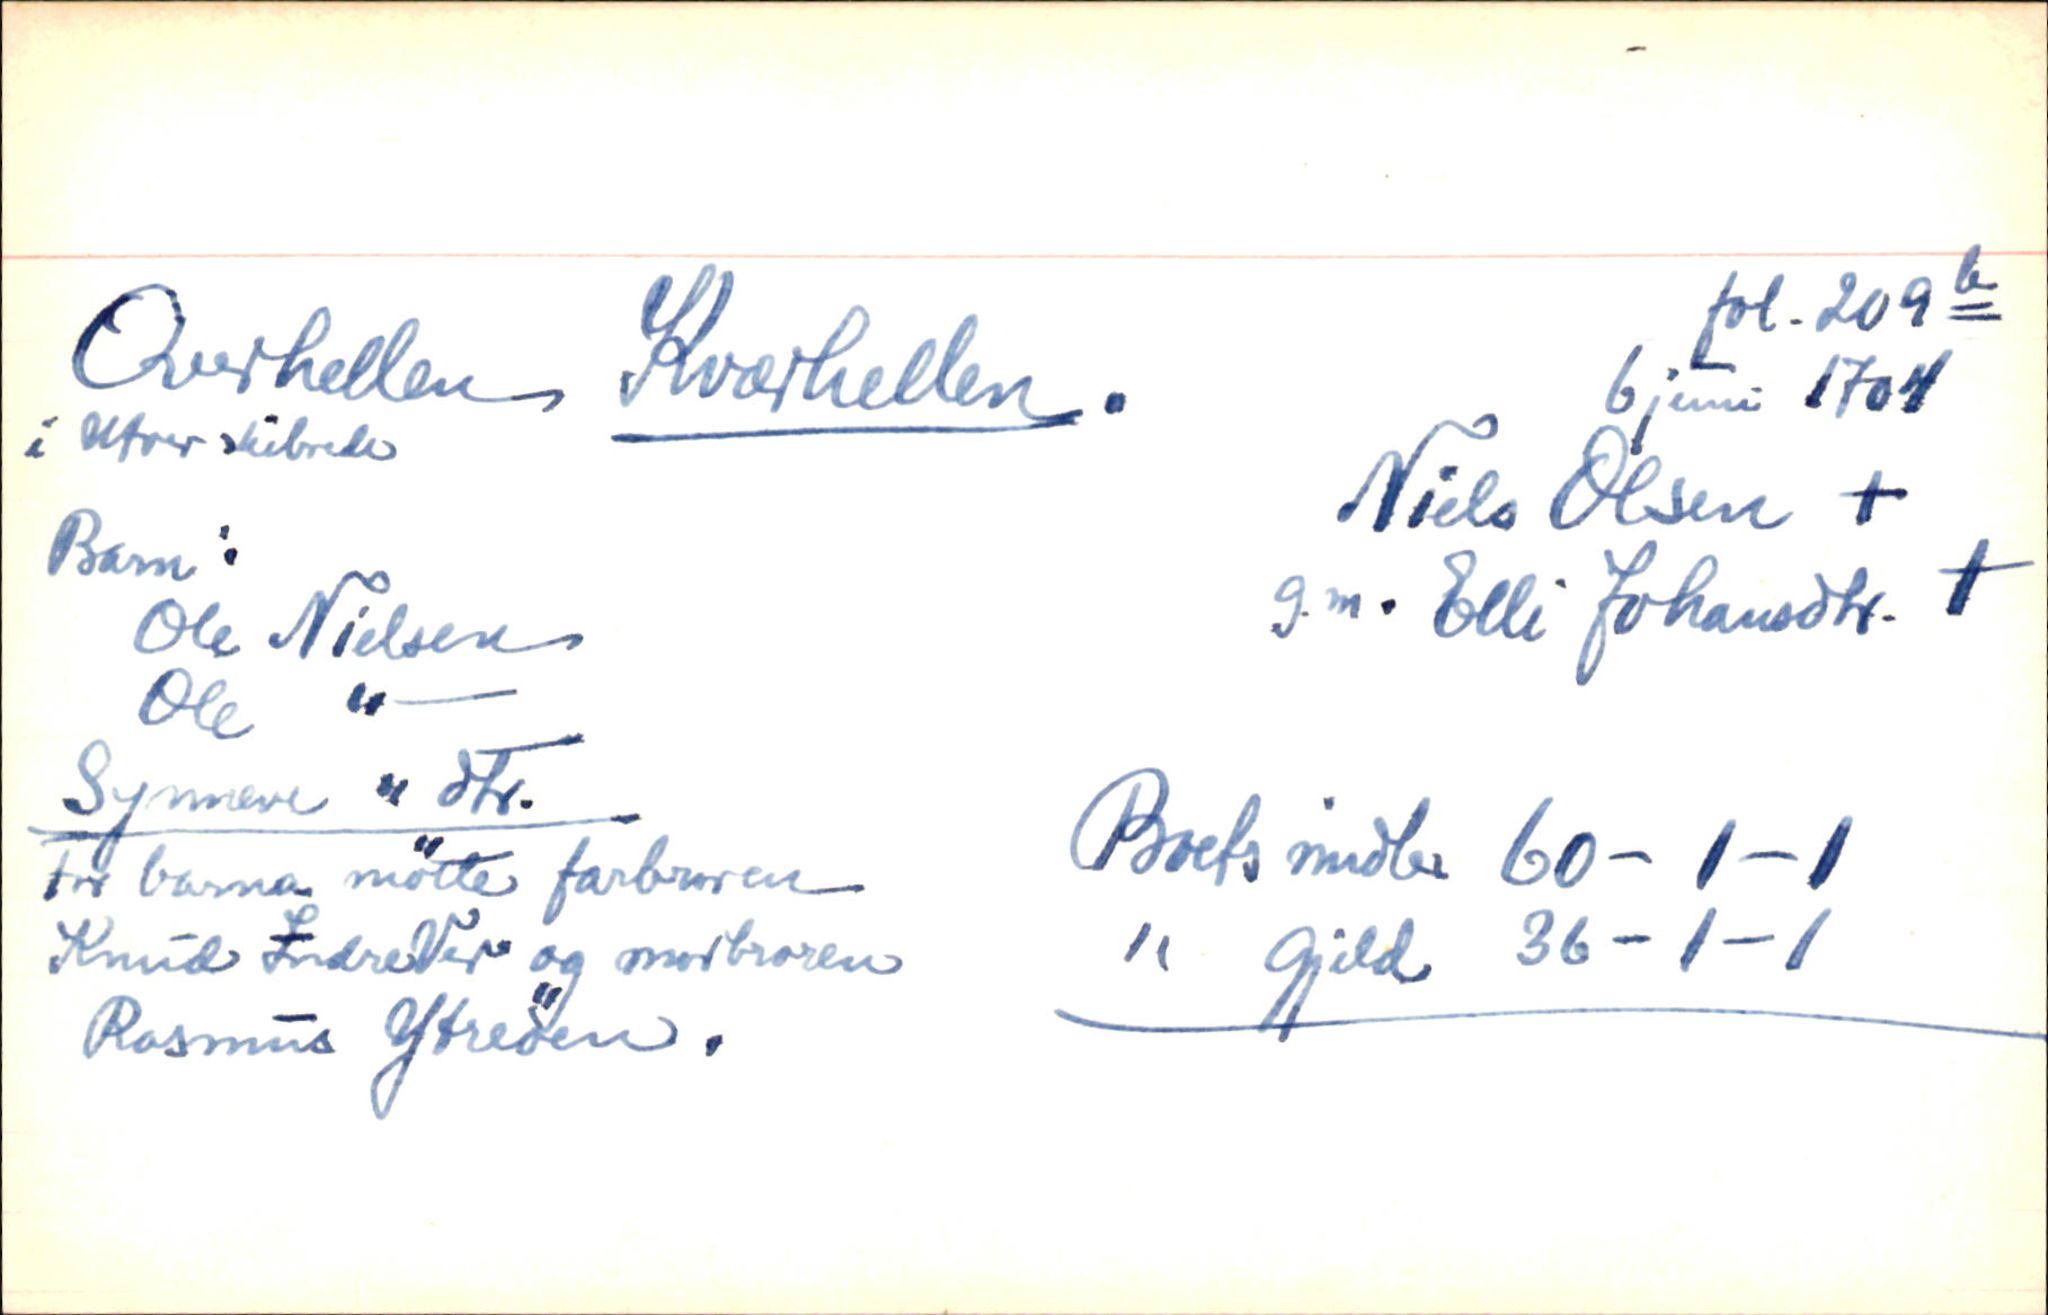 fol. 209 b
Overhellen Kværhellen.
6 juni 1704
i Utver skibrede
Niels Olsen +
Barn:
g.m. Elli Johansdtr. +
Ole Nielsen
Ole "—
Synneve " dtr.
Boets midler 60 – 1 – 1
For barna mötte farbroren
Knud IndreVer og morbroren
" Gjeld 36 – 1 – 1
Rasmus Ytreöen.